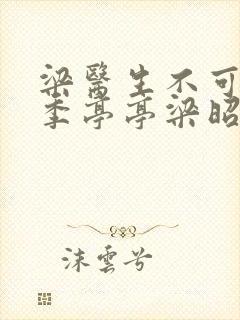 梁醫生不可
季亭亭梁昭
沫雲兮